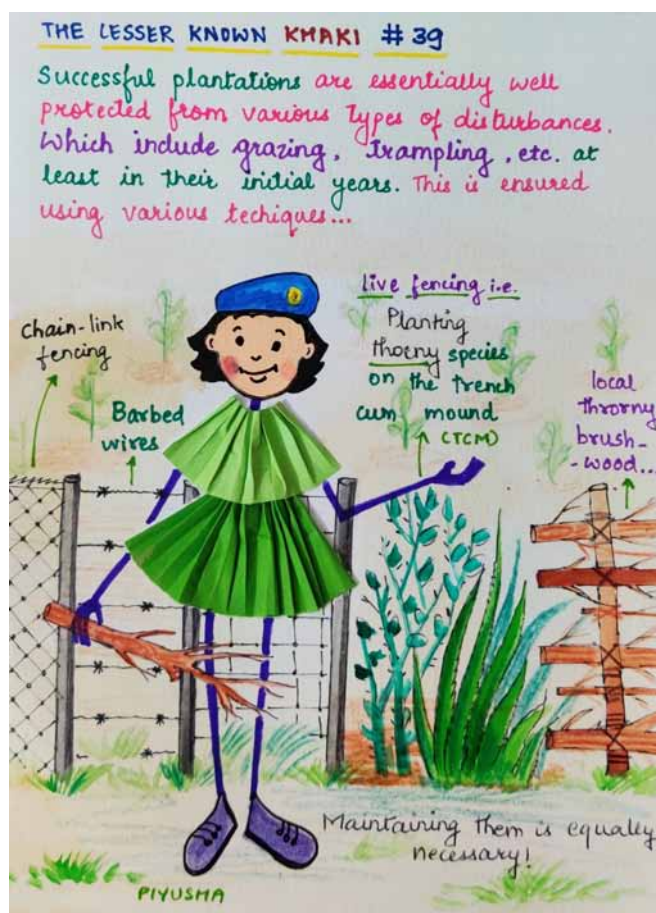 THE LESSER KNOWN KHAKI # 39
Successful plantations are essentially well
protected from various types of disturbances.
Which include grazing, trampling, etc. at
least in their initial years. This is ensured
using various techiques...
live fencing i.e.
Planting
thorny species
on the trench
cum mound
(TCM)
chain-link
fencing
Barbed
wires
local
throrny
brush-
-wood...
Maintaining them is equally
necessary!
PIYUSHA